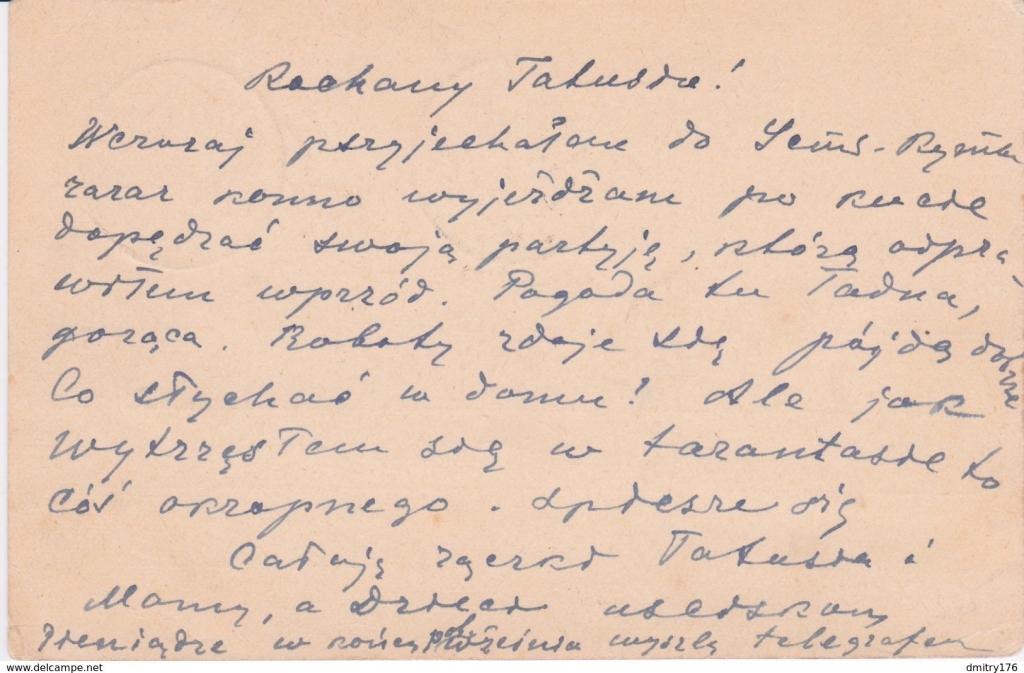 Kochany Tatusiu!
Wczoraj przyjechałem do
zaraz konno wyjeżdżam po kucie
dopędzać swoją partyję, którą odpra-
wiłem wprzód. Pogoda tu ładna,
gorąca. Roboty zdaje się pójdą dobrze
Co słychać w domu! Ale jak
wytrząsłem się w tarantasie to
cóś okropnego. Spieszę się
Całuję rączki Tatusia i
Mamy, a Dzieci uściskam
Pieniądze w końcu wyszlę telegrafem
www.delcampe.net
dmitry176